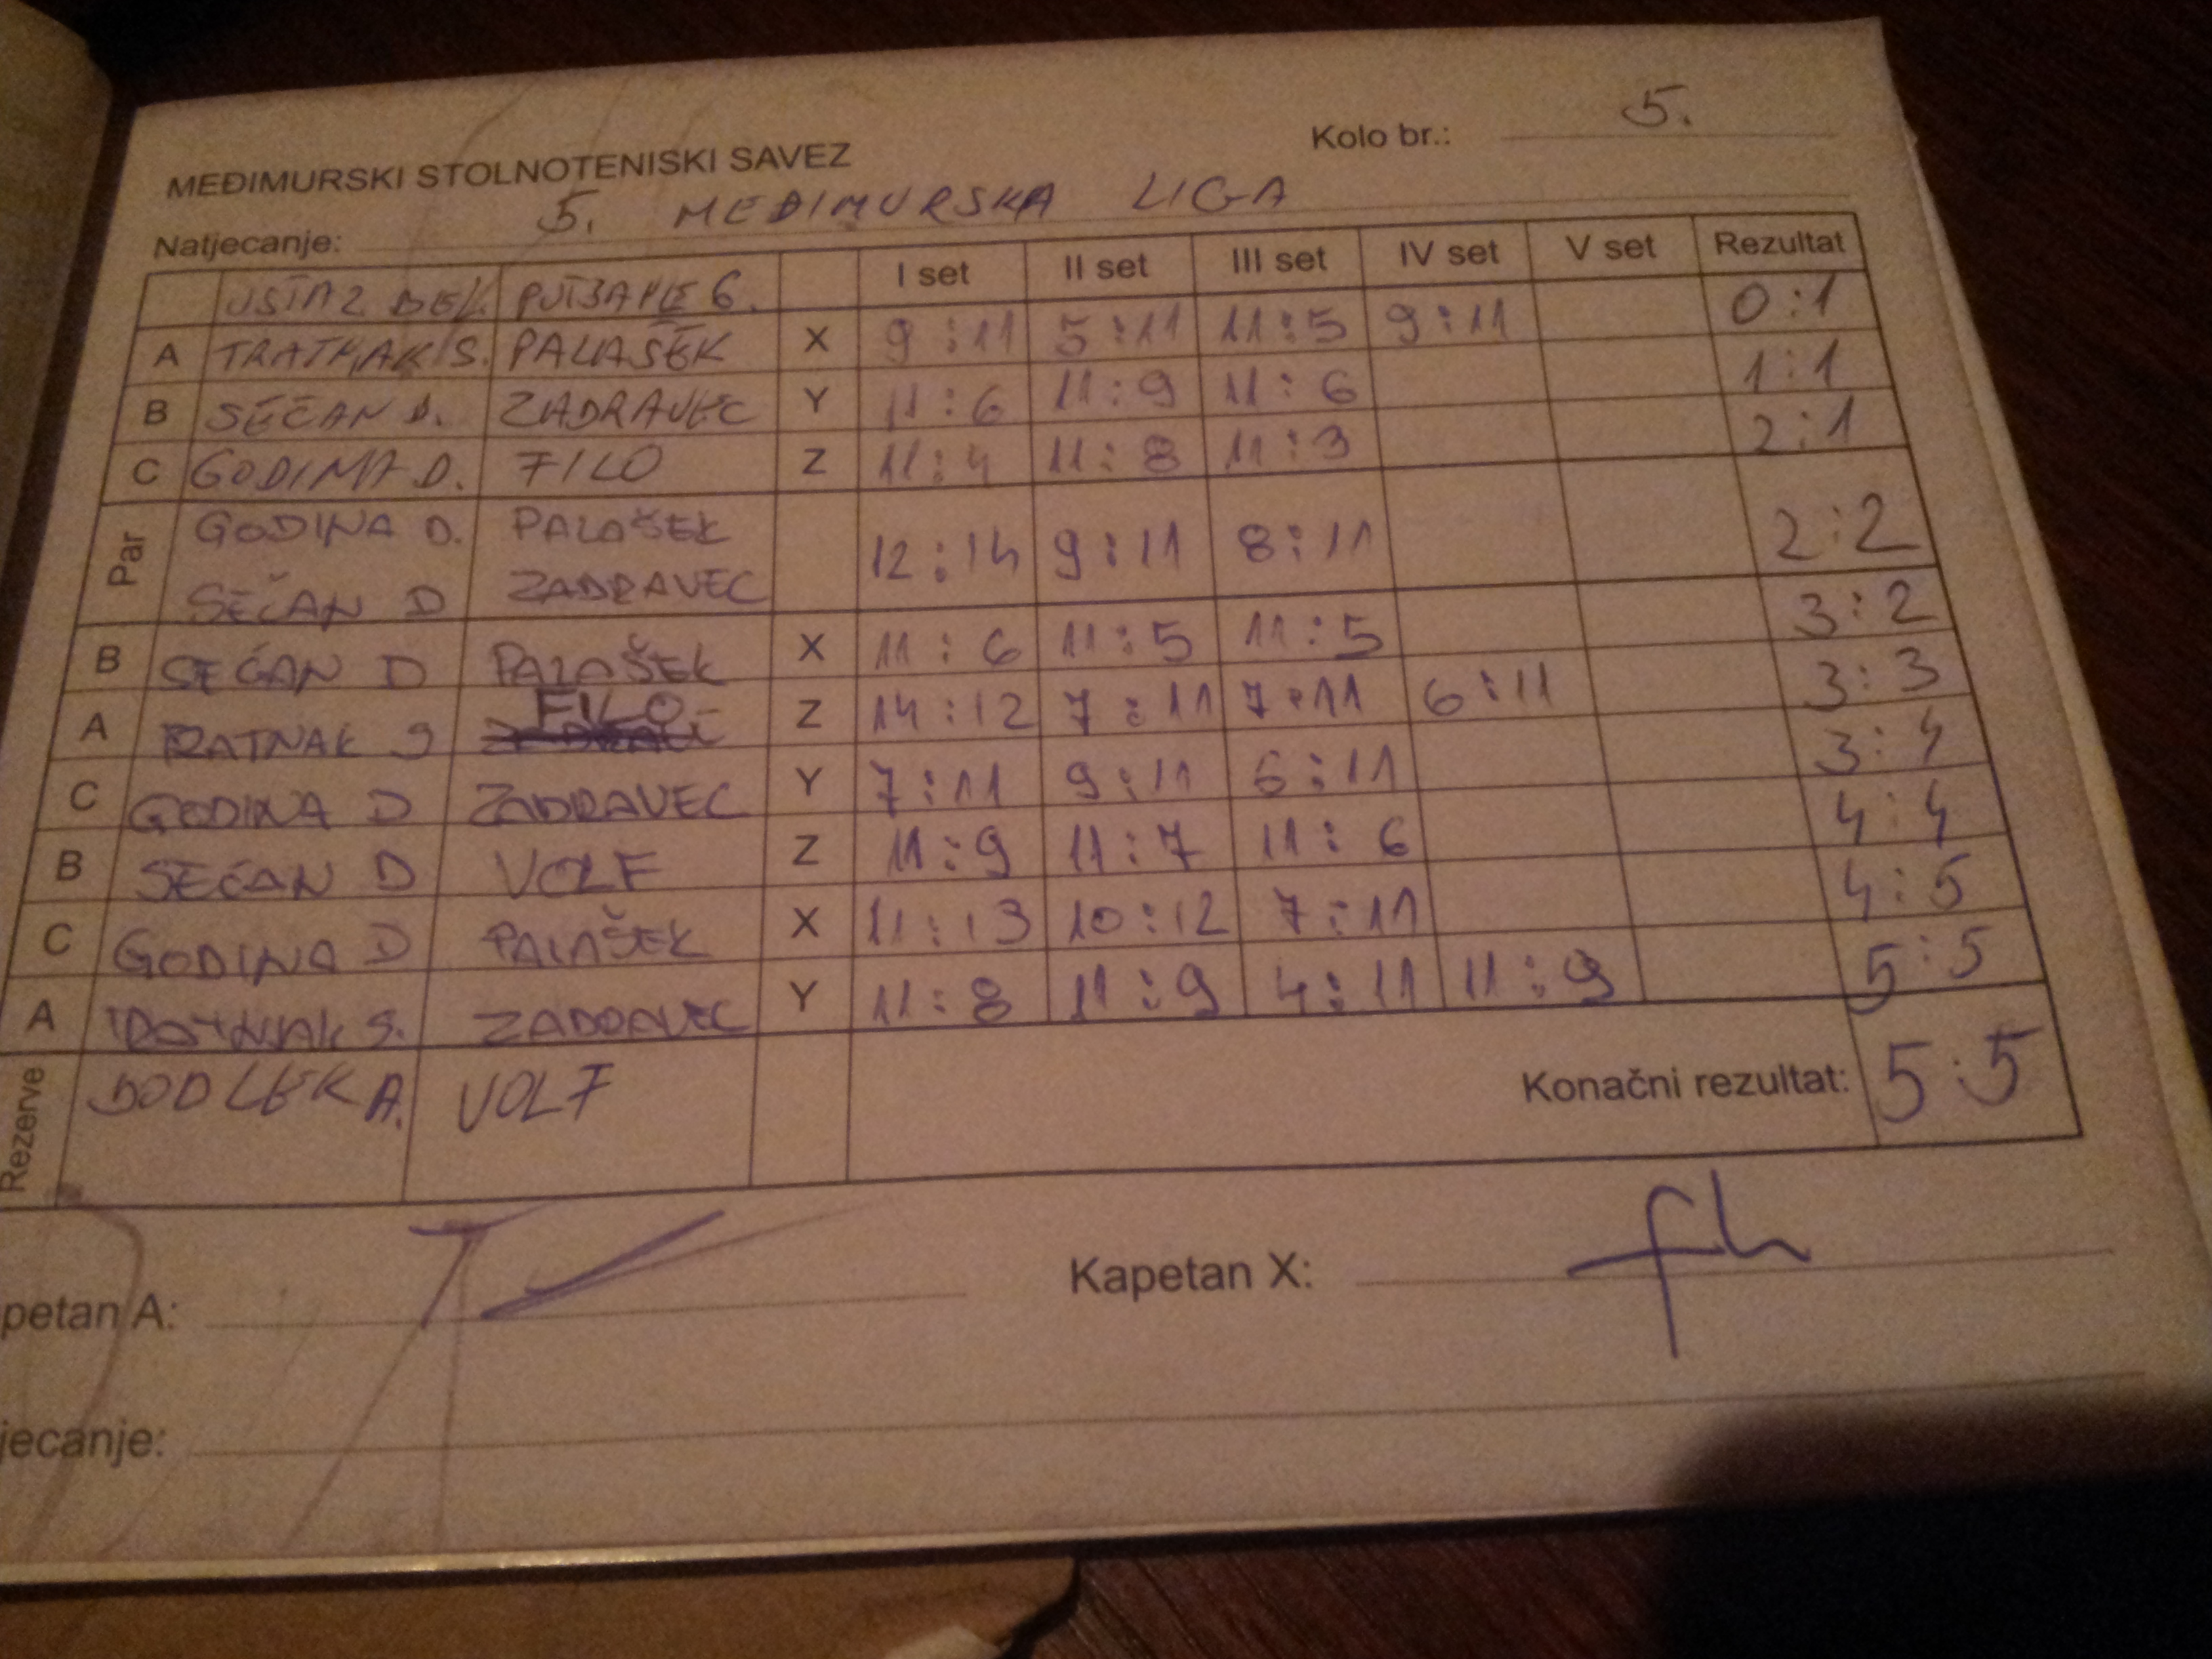 MEĐIMURSKI STOLNOTENISKI SAVEZ
Kolo br.: 5.
Natjecanje: 5. MEĐIMURSKA LIGA
I set II set III set IV set V set Rezultat
A S. PALAŠEK X 9:11 5:11 11:5 9:11 0:1
B SEČAN D. ZADRAVEC Y 11:6 11:9 11:6 1:1
C GODINA D. FILO Z 11:4 11:8 11:3 2:1
Par GODINA D. PALAŠEK 12:14 9:11 8:11 2:2
SEČAN D ZADRAVEC
B SEČAN D PALAŠEK X 11:6 11:5 11:5 3:2
A RATNAK S FILO Z 14:12 7:11 7:11 6:11 3:3
C GODINA D ZADRAVEC Y 7:11 9:11 6:11 3:4
B SEČAN D VOLF Z 11:9 11:7 11:6 4:4
C GODINA D PALAŠEK X 11:13 10:12 7:11 4:5
A S. ZADRAVEC Y 11:8 11:9 4:11 11:9 5:5
Rezerve DODLEK A. VOLF Konačni rezultat: 5:5
petan A: Kapetan X:
jecanje: